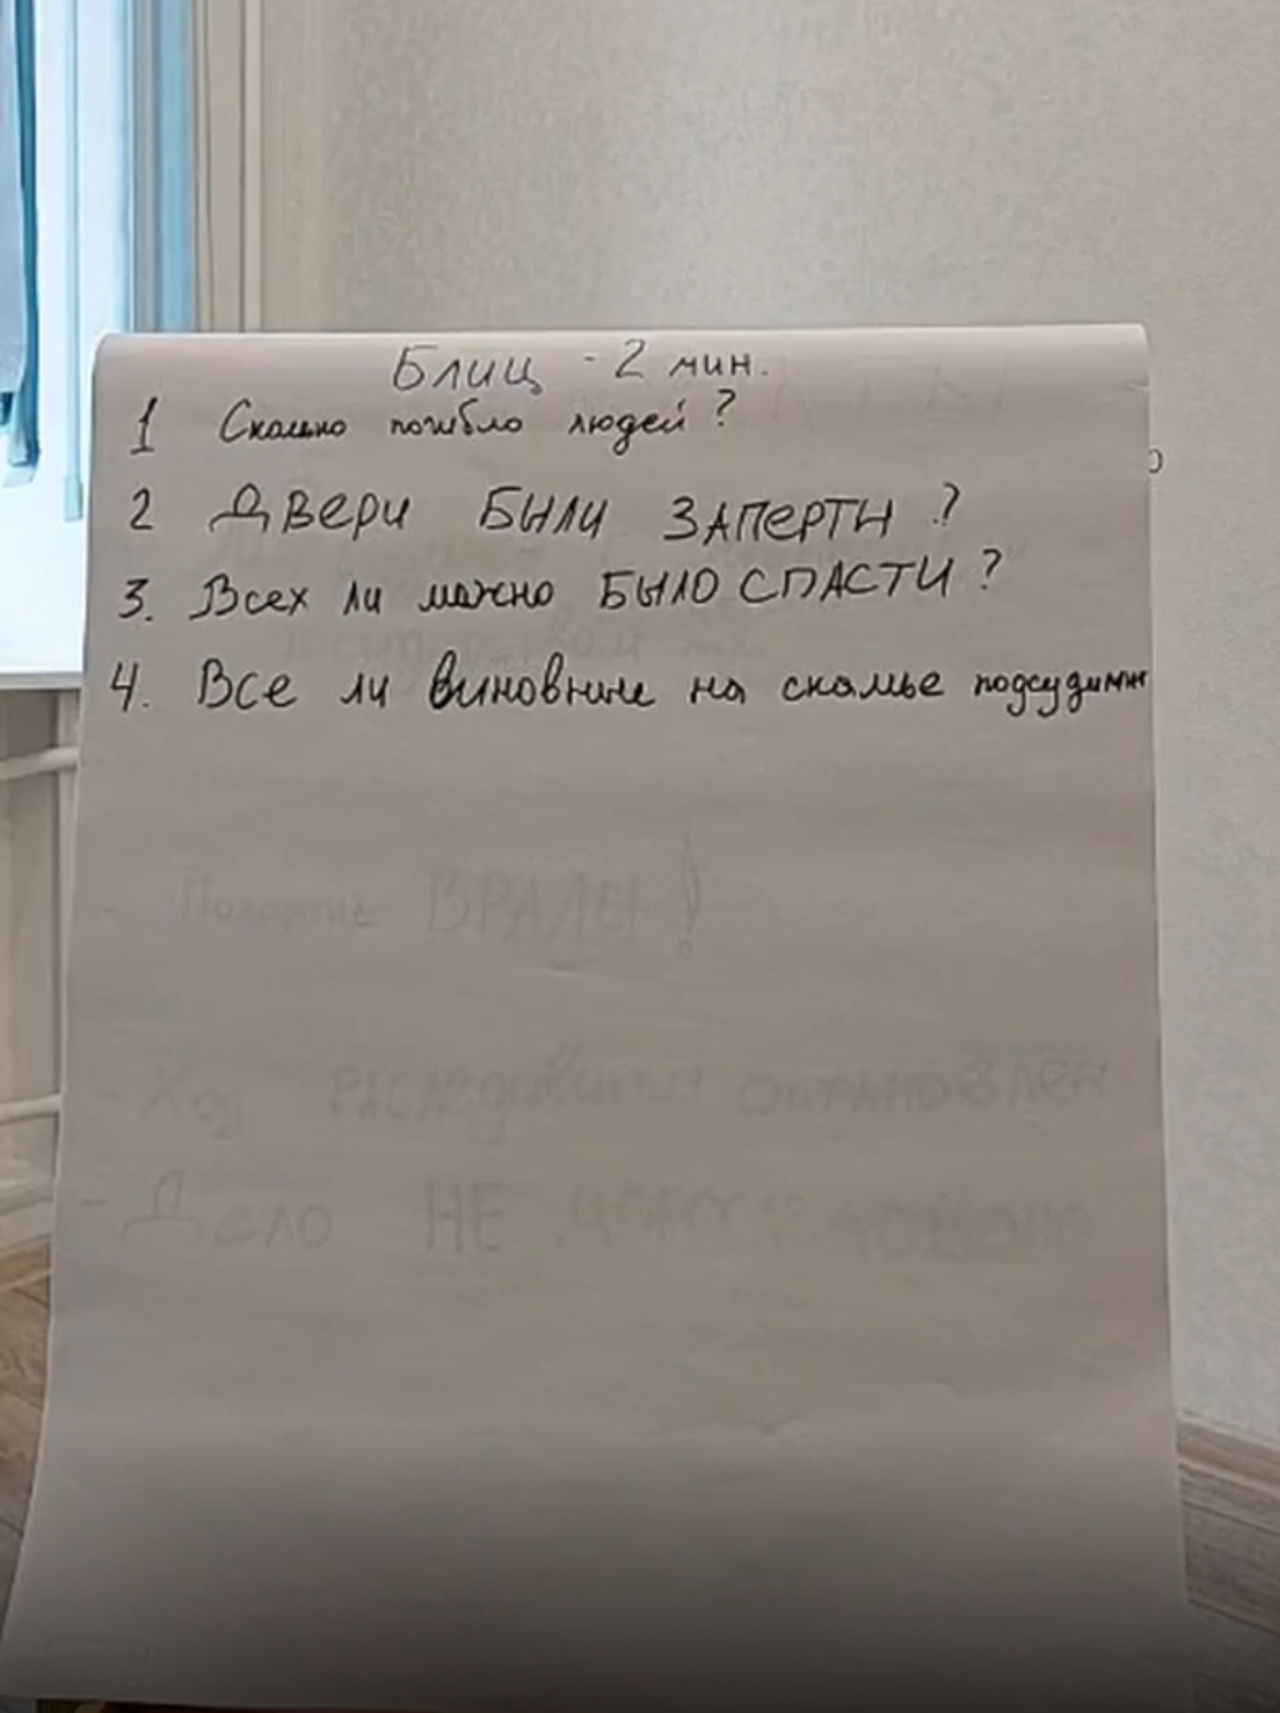 Блиц - 2 мин.
1 Сколько погибло людей?
2 Двери БЫЛИ ЗАПЕРТЫ?
3. Всех ли можно БЫЛО СПАСТИ?
4. Все ли виновные на скамье подсудимы
- Пожарные ВРАЛИ!
- Ход расследования остановлен
- Дело НЕ